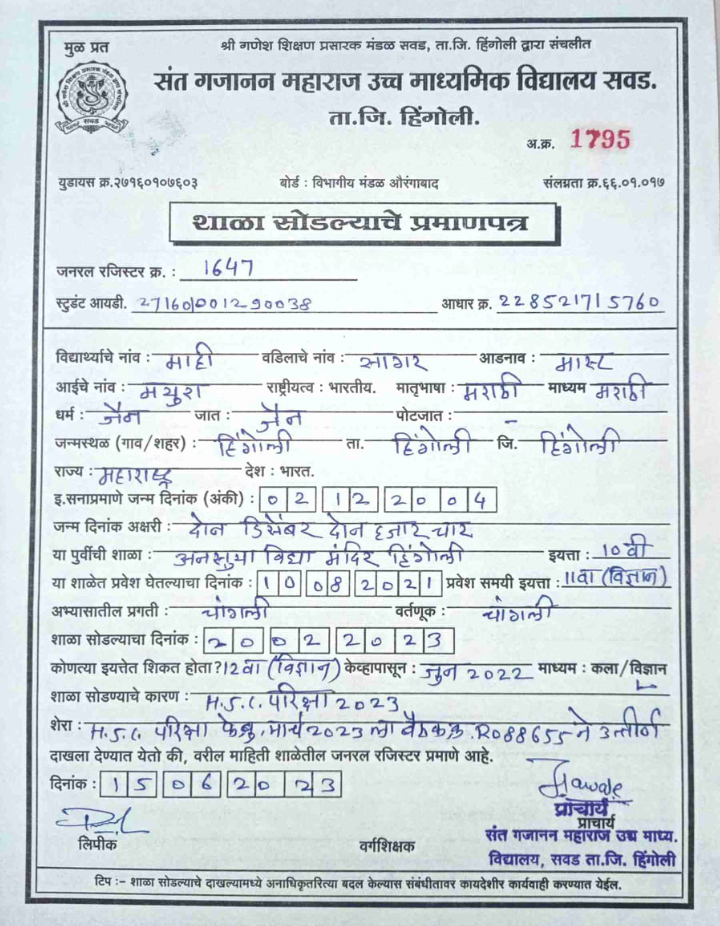 मुळ प्रत
श्री गणेश शिक्षण प्रसारक मंडळ सवड, ता.जि. हिंगोली द्वारा संचलीत
संत गजानन महाराज उच्च माध्यमिक विद्यालय सवड.
ता.जि. हिंगोली.
अ.क्र. 1795
युडायस क्र.२७१६०१०७६०३ बोर्ड : विभागीय मंडळ औरंगाबाद संलग्नता क्र.६६.०१.०१७
शाळा सोडल्याचे प्रमाणपत्र
जनरल रजिस्टर क्र. : 1647
स्टुडंट आयडी. 271601001290038 आधार क्र. 228521715760
विद्यार्थ्याचे नांव : माही वडिलाचे नांव : सागर आडनाव :
आईचे नांव : मयुरा राष्ट्रीयत्व : भारतीय. मातृभाषा : मराठी माध्यम मराठी
धर्म : जैन जात : जैन पोटजात : -
जन्मस्थळ (गाव/शहर) : हिंगोली ता. हिंगोली जि. हिंगोली
राज्य : महाराष्ट्र देश : भारत.
इ.सनाप्रमाणे जन्म दिनांक (अंकी) : 02 12 2004
जन्म दिनांक अक्षरी : दोन डिसेंबर दोन हजार चार
या पुर्वीची शाळा : अनसुया विद्या मंदिर हिंगोली इयत्ता : 10 वी
या शाळेत प्रवेश घेतल्याचा दिनांक : 10 08 2021 प्रवेश समयी इयत्ता : 11वा (विज्ञान)
अभ्यासातील प्रगती : चांगली वर्तणूक : चांगली
शाळा सोडल्याचा दिनांक : 20 02 2023
कोणत्या इयत्तेत शिकत होता? 12 वा (विज्ञान) केव्हापासून : जुन 2022 माध्यम : कला/विज्ञान
शाळा सोडण्याचे कारण : H.S.C. परिक्षा 2023
शेरा : H.S.C. परिक्षा फेब्रु. मार्च 2023 ला बैठक क्र. R088655 ने उत्तीर्ण
दाखला देण्यात येतो की, वरील माहिती शाळेतील जनरल रजिस्टर प्रमाणे आहे.
दिनांक : 15 06 2023
प्राचार्य
प्राचार्य
लिपीक वर्गशिक्षक संत गजानन महाराज उच्च माध्य.
विद्यालय, सवड ता.जि. हिंगोली
टिप :- शाळा सोडल्याचे दाखल्यामध्ये अनाधिकृतरित्या बदल केल्यास संबंधीतावर कायदेशीर कार्यवाही करण्यात येईल.